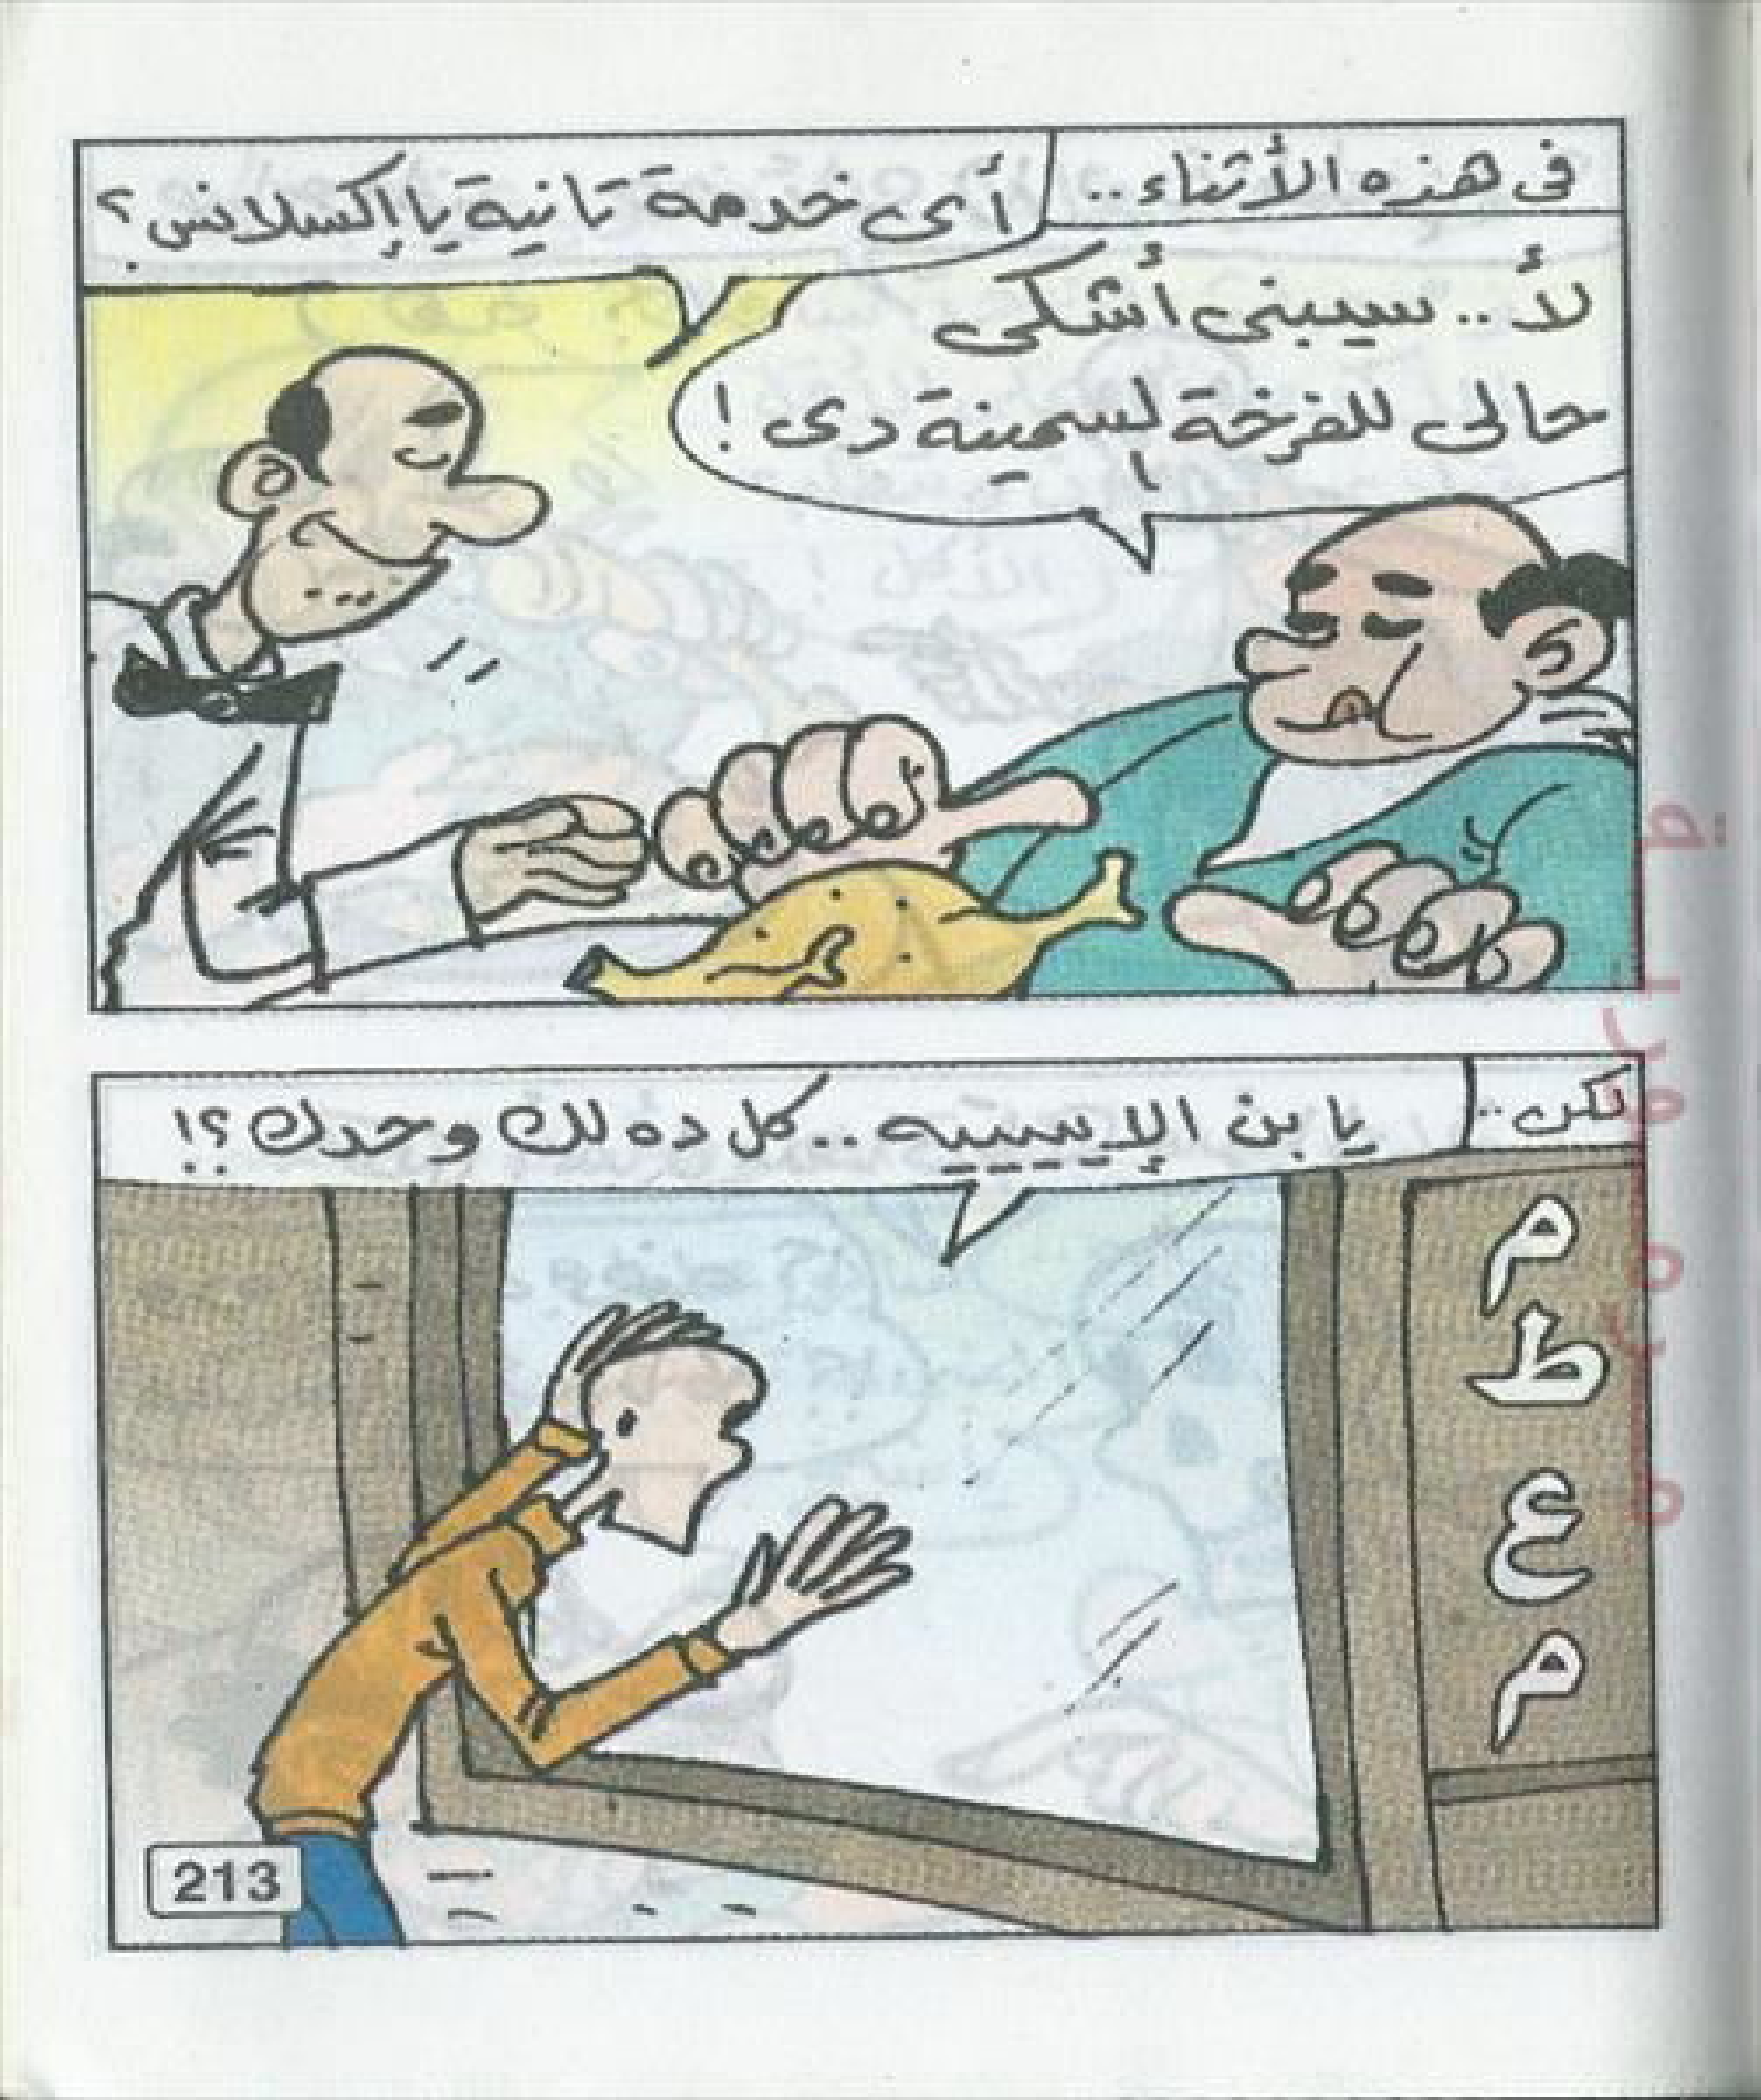 فى هذه الأثناء..
أى خدمة تانية يا إكسلانس؟
لأ.. سيبنى أشكى
حالى للفرخة السمينة دى!
لكن..
يا بن الإيييييه.. كل ده لك وحدك؟!
م
ط
ع
م
213